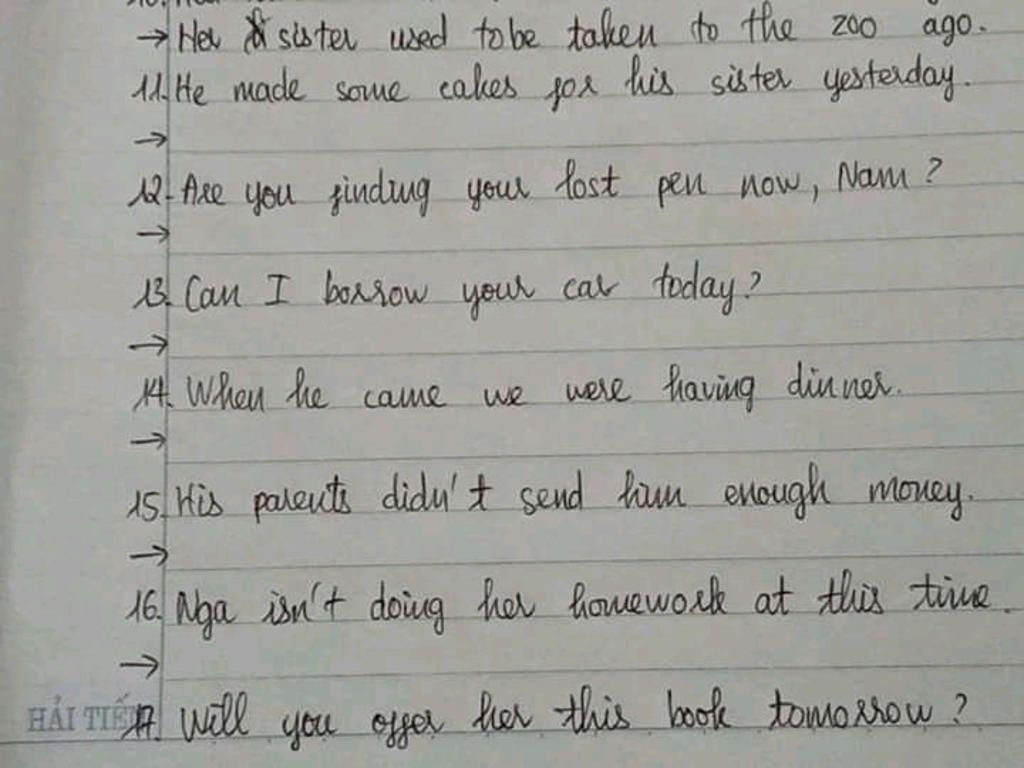 → Her sister used to be taken to the zoo ago.
11. He made some cakes for his sister yesterday.
→
12. Are you finding your lost pen now, Nam?
→
13. Can I borrow your car today?
→
14. When he came we were having dinner.
→
15. His parents didn't send him enough money.
→
16. Nga isn't doing her homework at this time.
→
HẢI TIẾN
17. Will you offer her this book tomorrow?